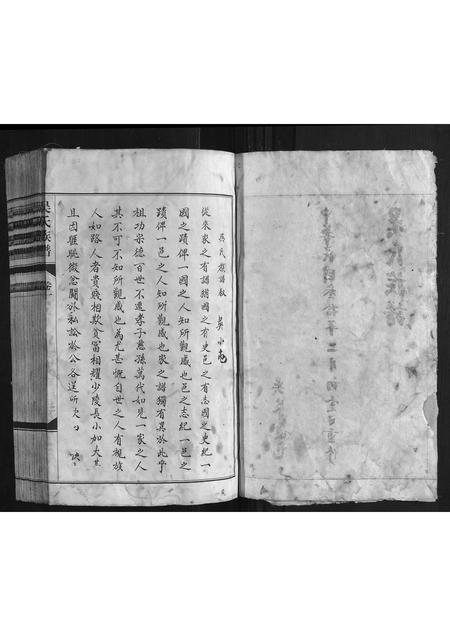 吳氏族譜
中華民國叁拾年二月
吳氏族譜叙
吳小屯
從來家之有譜猶國之有史邑之有志國之史紀一
國之蹟俾一國之人知所觀感也邑之志紀一邑之
蹟俾一邑之人知所觀感也家之譜獨有異於此乎
祖功宗德百世不遷孝子慈孫萬代如見一家之人
其不可不知所觀感也為尤甚慨自世之人有視族
人如路人者貴賤相欺貧富相耀少陵長小加大甚
且因睚眦微忿鬪於私訟於公各逞所欠
吳氏族譜
卷一